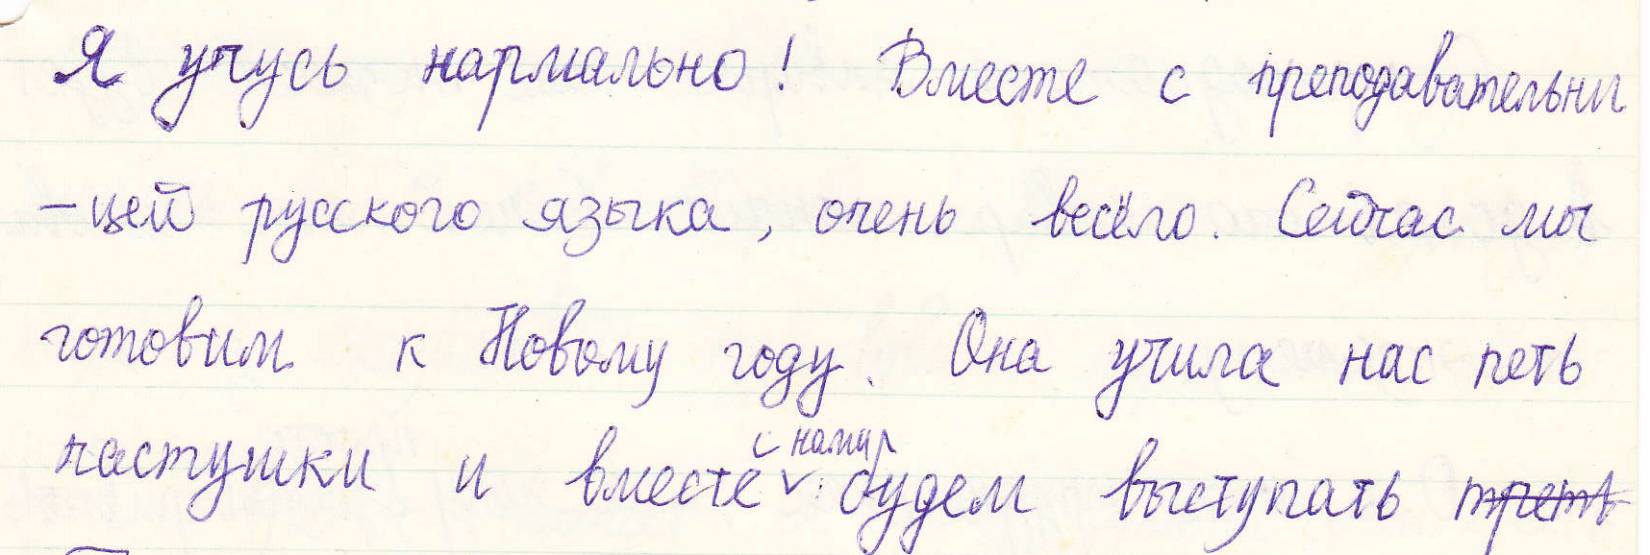 Я учусь нармально! Вместе с преподавательни
-цей русского языка, очень весёло. Сейчас мы
готовим к Новому году. Она учила нас петь
частушки и вместе с нами будем выступать треть